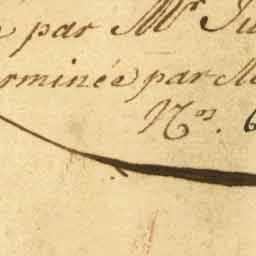 par Mr. Ju
erminée par M
Nos. 6